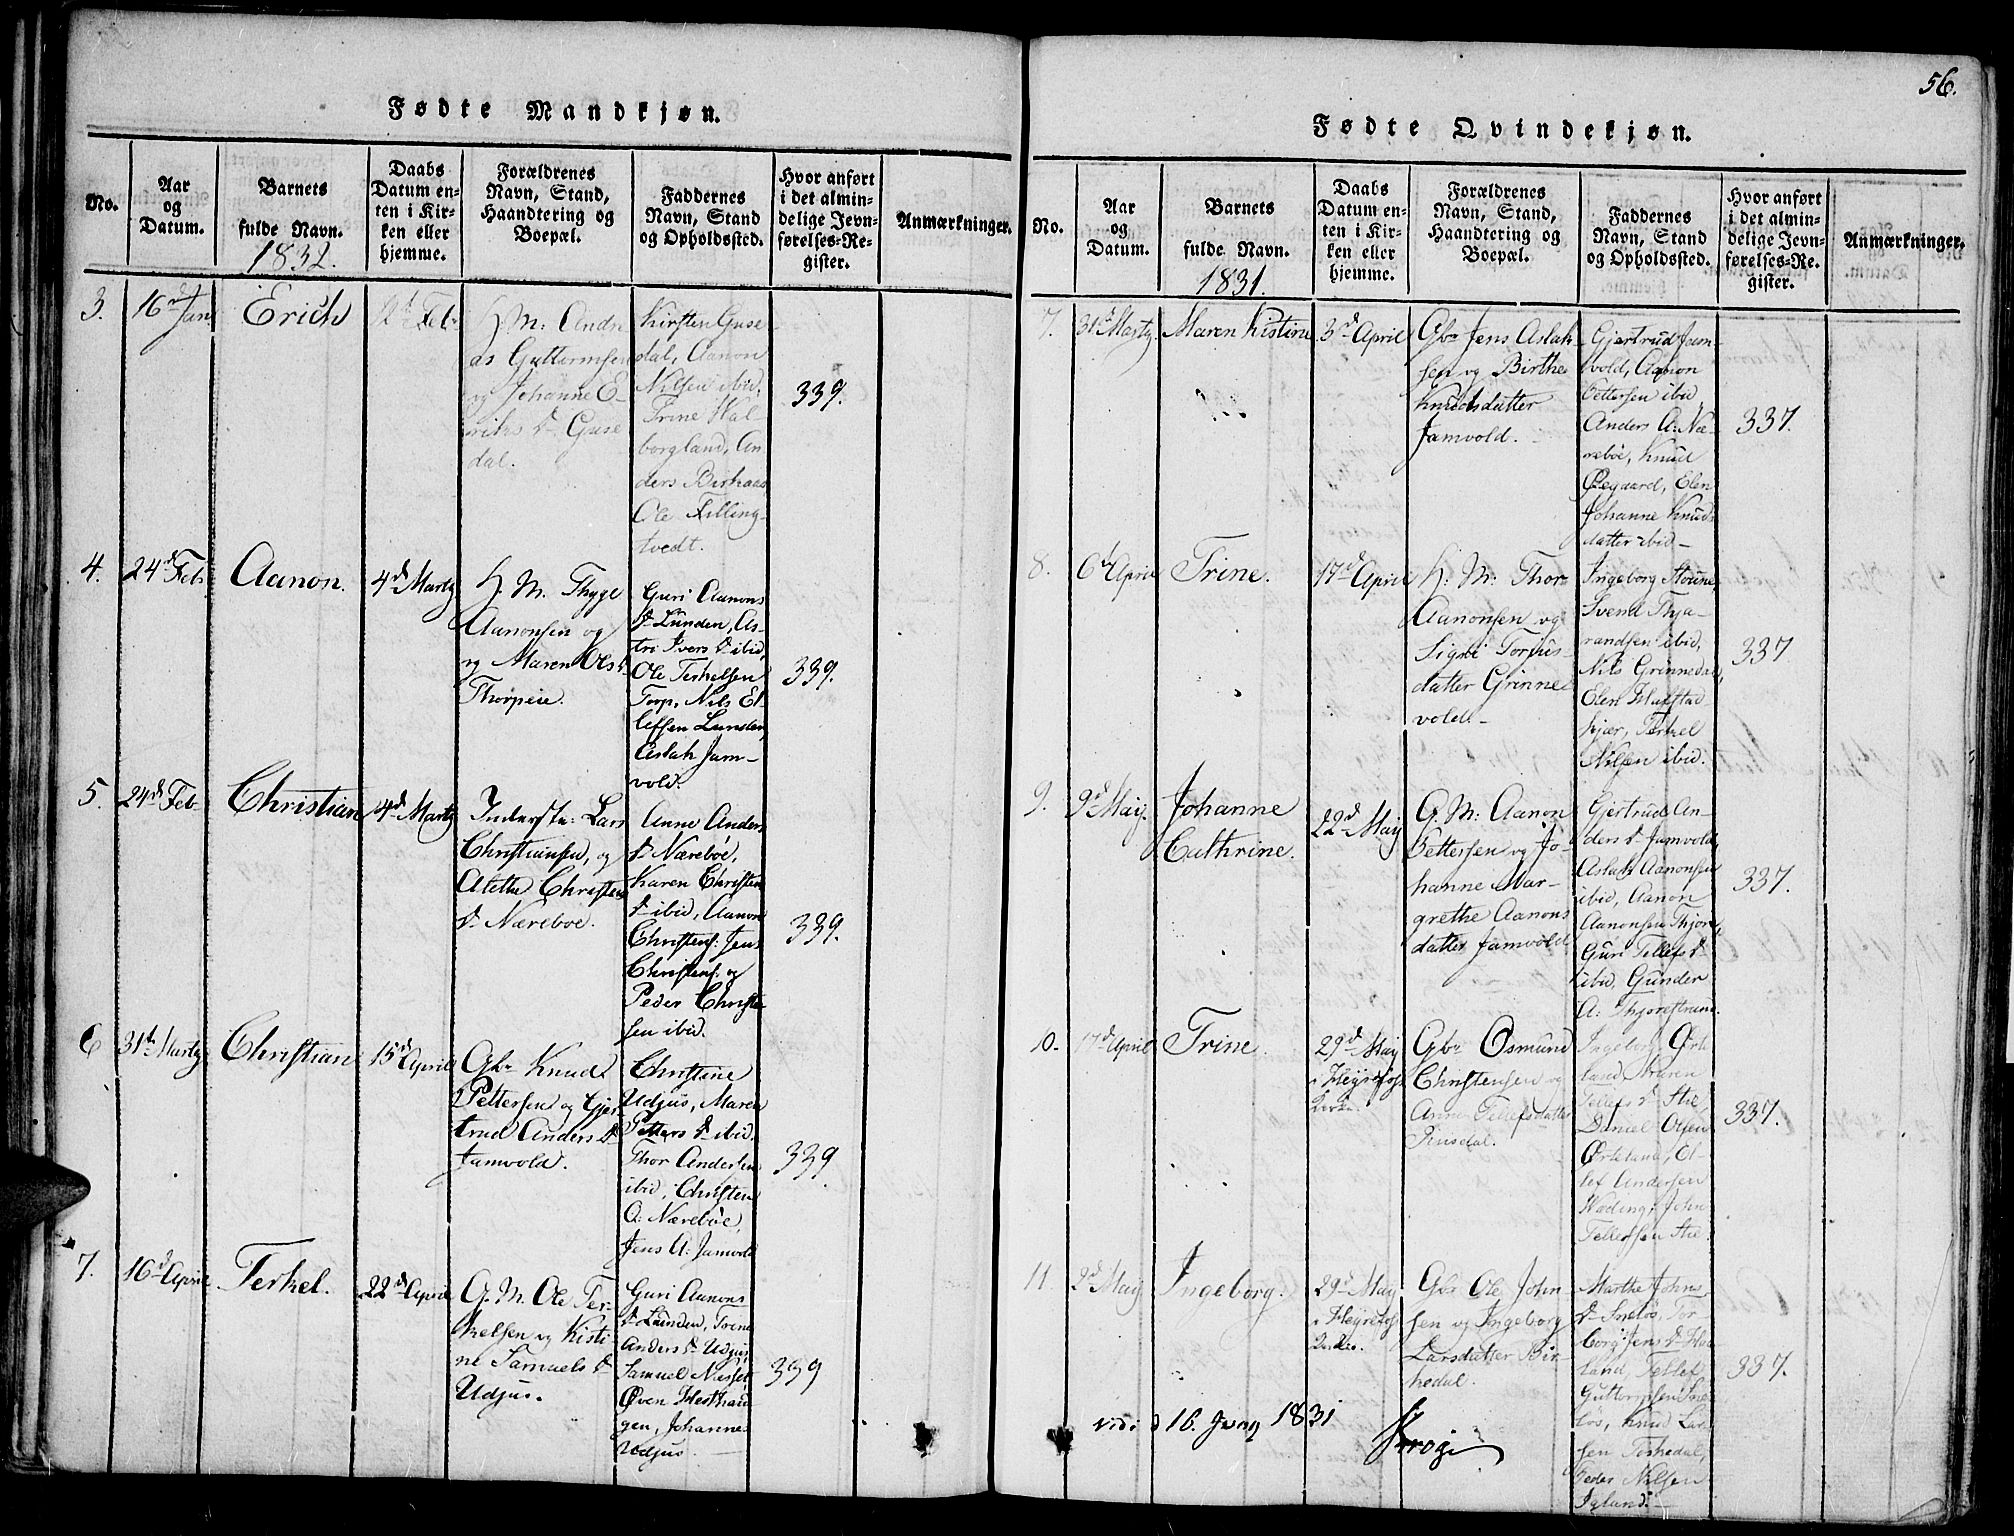 Fødte Mandkjøn.
No.
Aar
og
Datum.
Barnets
fulde Navn.
1832.
Daabs
Datum en-
ten i Kir-
ken eller
hjemme.
Forældrenes
Navn, Stand,
Haandtering og
Boepæl.
Faddernes
Navn, Stand
og Opholdssted.
Hvor anført
i det almin-
delige Jevn-
førelses-Re-
gister.
Anmærkninger.
3.
16d Jan
Erich
H. M: Andr
as Guttormsen
og Johanne E-
riks D. Guse
dal.
Kirsten Guse
dal, Aanon
Nilsen ibid,
Trine Wal
borgland, An
ders Birkaas
Ole Filling-
tvedt.
339.
4.
24d Feb
Aanon.
4d Marty
H. M. Thyge
Aanonsen og
og Maren Ols D
Thorpeie.
Guri Aanons
D. Lunden, As-
tri Ivers D. ibid,
Ole Terkelsen
Torp, Nils El
lefsen Lunden,
Aslak Jam-
vold.
339.
5.
24d Feb
Christian
4d Marty
Inderste: Lars
Christiansen, og
Alethe Christens
D. Næreboe.
Anne Anders
D. Nærebøe,
Karen Christen
D. ibid, Aanon
Christens: Jens
Christens. og
Peder Christen
sen ibid.
339.
6
31d Marty
Christian
15d April
Gbr Knud
Pettersen og Gjer-
trud Anders D.
Jamvold.
Christine
Udjus, Maren
Petters D. ibid.
Thor Andersen
ibid, Christen
A: Nærebøe,
Jens A: Jamvold
339
7.
16d April
Terkel.
22d April
G. M. Ole Ter-
kelsen og Kisti-
ne Samuels D
Udjus.
Guri Aanons
D. Lunden, Trine
Anders D. Udjus,
Samuel Næsset
Øven Hesthau-
gen, Johannes
Udjus
339
56.
Fødte Qvindekjøn.
No.
Aar
og
Datum.
Barnets
fulde Navn.
1831.
Daabs
Datum en-
ten i Kir-
ken eller
hjemme.
Forældrenes
Navn, Stand,
Haandtering og
Boepæl.
Faddernes
Navn, Stand
og Opholdssted.
Hvor anført
i det almin-
delige Jevn-
førelses-Re-
gister.
Anmærkninger.
7.
31d Marty
Maren Kistine
3d April
Gbr Jens Aslak
sen og Birthe
Knudsdatter
Jamvold.
Gjertrud Jam-
vold, Aanon
Pettersen ibid,
Anders A: Næ-
rebøe, Knud
Øegaard, Elen
Johanne Knuds
datter ibid-
337.
8.
6d April
Trine.
17d April
H: M: Thor
Aanonsen og
Signi Torjus-
datter Grinne
vold.-
Ingeborg
Svend Thja-
randsen ibid,
Nils Grinnedal,
Elen
kjær, Terkel
Nilsen ibid.
337
9.
9d May
Johanne
Cathrine.
22d May
G. M: Aanon
Pettersen og Jo-
hanne Mar-
grethe Aanons
datter Jamvold
Gjertrud An-
ders D. Jamvold,
Aslak Aanonsen
ibid, Aanon
Aanonsen Thjore,
Guri Tellefs D.
ibid, Gunder
A: Thjorestrand.
337.
10.
17d April
Trine.
29d May
i Heyrefos
Kirke.
Gbr Osmund
Christensen og
Anne Tellefsdatter
Ingeborg
land, Maren
Tellefs D.
Daniel Olsen
El-
lef Andersen
John
Tellefsen
337.
11.
2d May
Ingeborg.
29d May
i Heyrefos
Kirke.
Gbr Ole John
sen og Ingeborg
Larsdatter Bir-
kedal.
Marthe Johns
D.
borg Jens D.
land, Tellef
Guttormsen
Knud
sen
Peder Nilsen
Igland.-
337.
vidi d 16. Juny 1831
Krogi